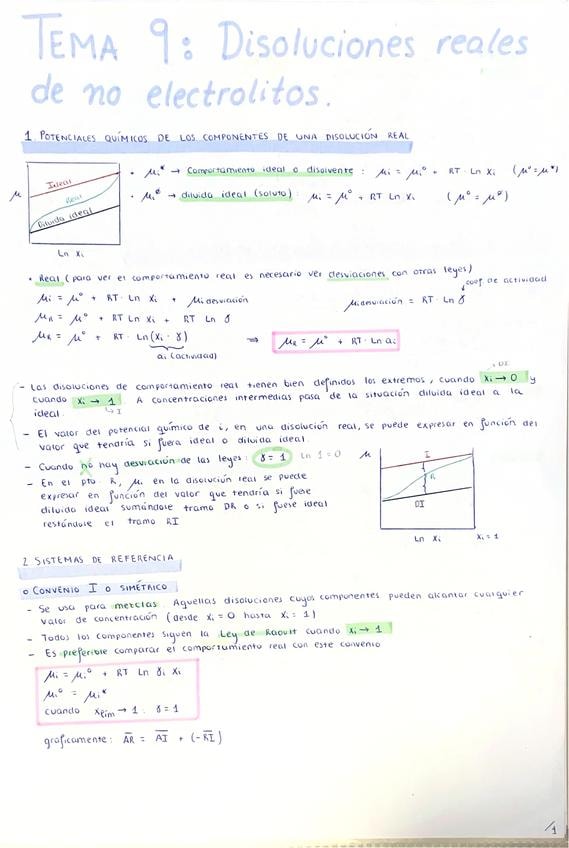 TEMA 9: Disoluciones reales
de no electrolitos.
1. POTENCIALES QUÍMICOS DE LOS COMPONENTES DE UNA DISOLUCIÓN REAL
μ
Ideal
Real
Diluida ideal
Ln xi
• μi* → Comportamiento ideal o disolvente: μi = μi° + RT · Ln xi (μ° = μ*)
• μi∅ → diluida ideal (soluto): μi = μ° + RT Ln xi (μ° = μ∅)
• Real (para ver el comportamiento real es necesario ver desviaciones con otras leyes)
coef. de actividad
μi = μ° + RT · Ln xi + μi desviación
μi desviación = RT · Ln γ
μR = μ° + RT Ln xi + RT Ln γ
μR = μ° + RT · Ln (xi · γ) ⇒ μR = μ° + RT · Ln ai
ai (actividad)
DI
- Las disoluciones de comportamiento real tienen bien definidos los extremos, cuando xi → 0 y
cuando xi → 1 A concentraciones intermedias pasa de la situación diluida ideal a la
↳ I
ideal.
- El valor del potencial químico de i, en una disolución real, se puede expresar en función del
valor que tendría si fuera ideal o diluida ideal.
- Cuando no hay desviación de las leyes: γ = 1 Ln 1 = 0
- En el pto. R, μi en la disolución real se puede
expresar en función del valor que tendría si fuese
diluida ideal sumándole tramo DR o si fuese ideal
restándole el tramo RI
μ
I
R
DI
Ln xi
xi = 1
2 SISTEMAS DE REFERENCIA
o CONVENIO I O SIMÉTRICO
- Se usa para mezclas. Aquellas disoluciones cuyos componentes pueden alcanzar cualquier
valor de concentración (desde xi = 0 hasta xi = 1)
- Todos los componentes siguen la Ley de Raoult cuando xi → 1
- Es preferible comparar el comportamiento real con este convenio
μi = μi° + RT Ln γi xi
μi° = μi*
cuando xlim → 1 : γ = 1
gráficamente: AR = AI + (-RI)
/1